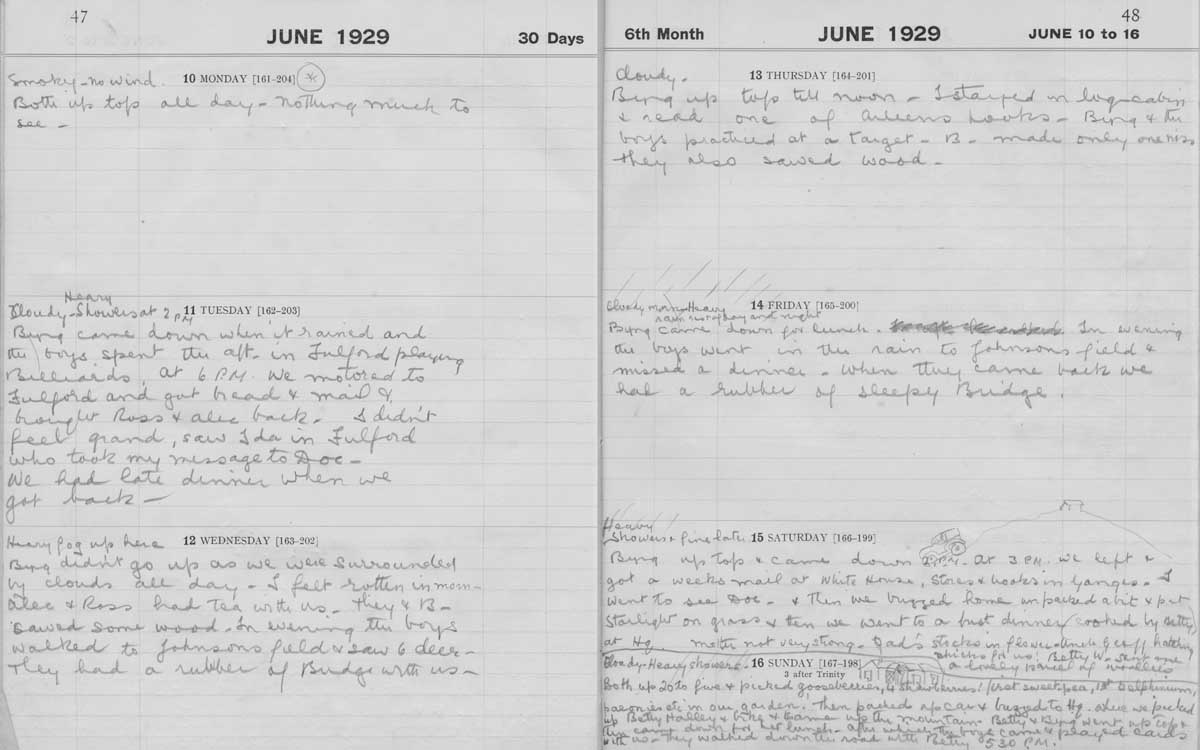 47
JUNE 1929
30 Days
Smoky - no wind.
10 MONDAY [161-204]
Both up top all day - nothing much to
see -
Heavy
Cloudy - Showers at 2 PM
11 TUESDAY [162-203]
Byng came down when it rained and
the boys spent the aft. in Fulford playing
Billiards, at 6 P.M. we motored to
Fulford and got bread & mail &
brought Ross & Alec back. I didn't
feel grand, saw Ida in Fulford
who took my message to Doc -
We had late dinner when we
got back -
Heavy fog up here
12 WEDNESDAY [163-202]
Byng didn't go up as we were surrounded
by clouds all day - I felt rotten in morn -
Alec & Ross had Tea with us - they & B -
sawed some wood. In evening the boys
walked to Johnsons field & saw 6 deer -
They had a rubber of Bridge with us -
48
6th Month
JUNE 1929
JUNE 10 to 16
Cloudy -
13 THURSDAY [164-201]
Byng up top till noon - I stayed in log cabin
& read one of books - Byng & the
boys practiced at a target - B - made only one miss
they also sawed wood -
Cloudy morn - Heavy
rain rest of day and night
14 FRIDAY [165-200]
Byng came down for lunch. In evening
the boys went in the rain to Johnsons field &
missed a dinner - when they came back we
had a rubber of sleepy Bridge.
Heavy
Showers & fine later
15 SATURDAY [166-199]
Byng up top & came down 2 PM. At 3 PM. we left &
got a weeks mail at White House, stores & books in Ganges - I
went to see Doc - & then we buzzed home unpacked a bit & put
Starlight on grass & then we went to a bust dinner cooked by Betty
at Hq. mother not very strong - Dad's stocks in flower - hatching
chicks for us! Betty W - sent me
a lovely parcel of woollies
Cloudy - Heavy showers -
16 SUNDAY [167-198]
3 after Trinity
Both up 20 to five & picked gooseberries, 4 strawberries! first sweet pea, 1st Delphinium,
paeonies etc in our garden. Then packed up car & buzzed to Hq. where we picked
up Betty Halley & bike & came up the mountain - Betty & Byng went up top &
then came down for hot lunch - after which the boys came & played cards
with us - they walked down the road with Betty 5.30 P.M.